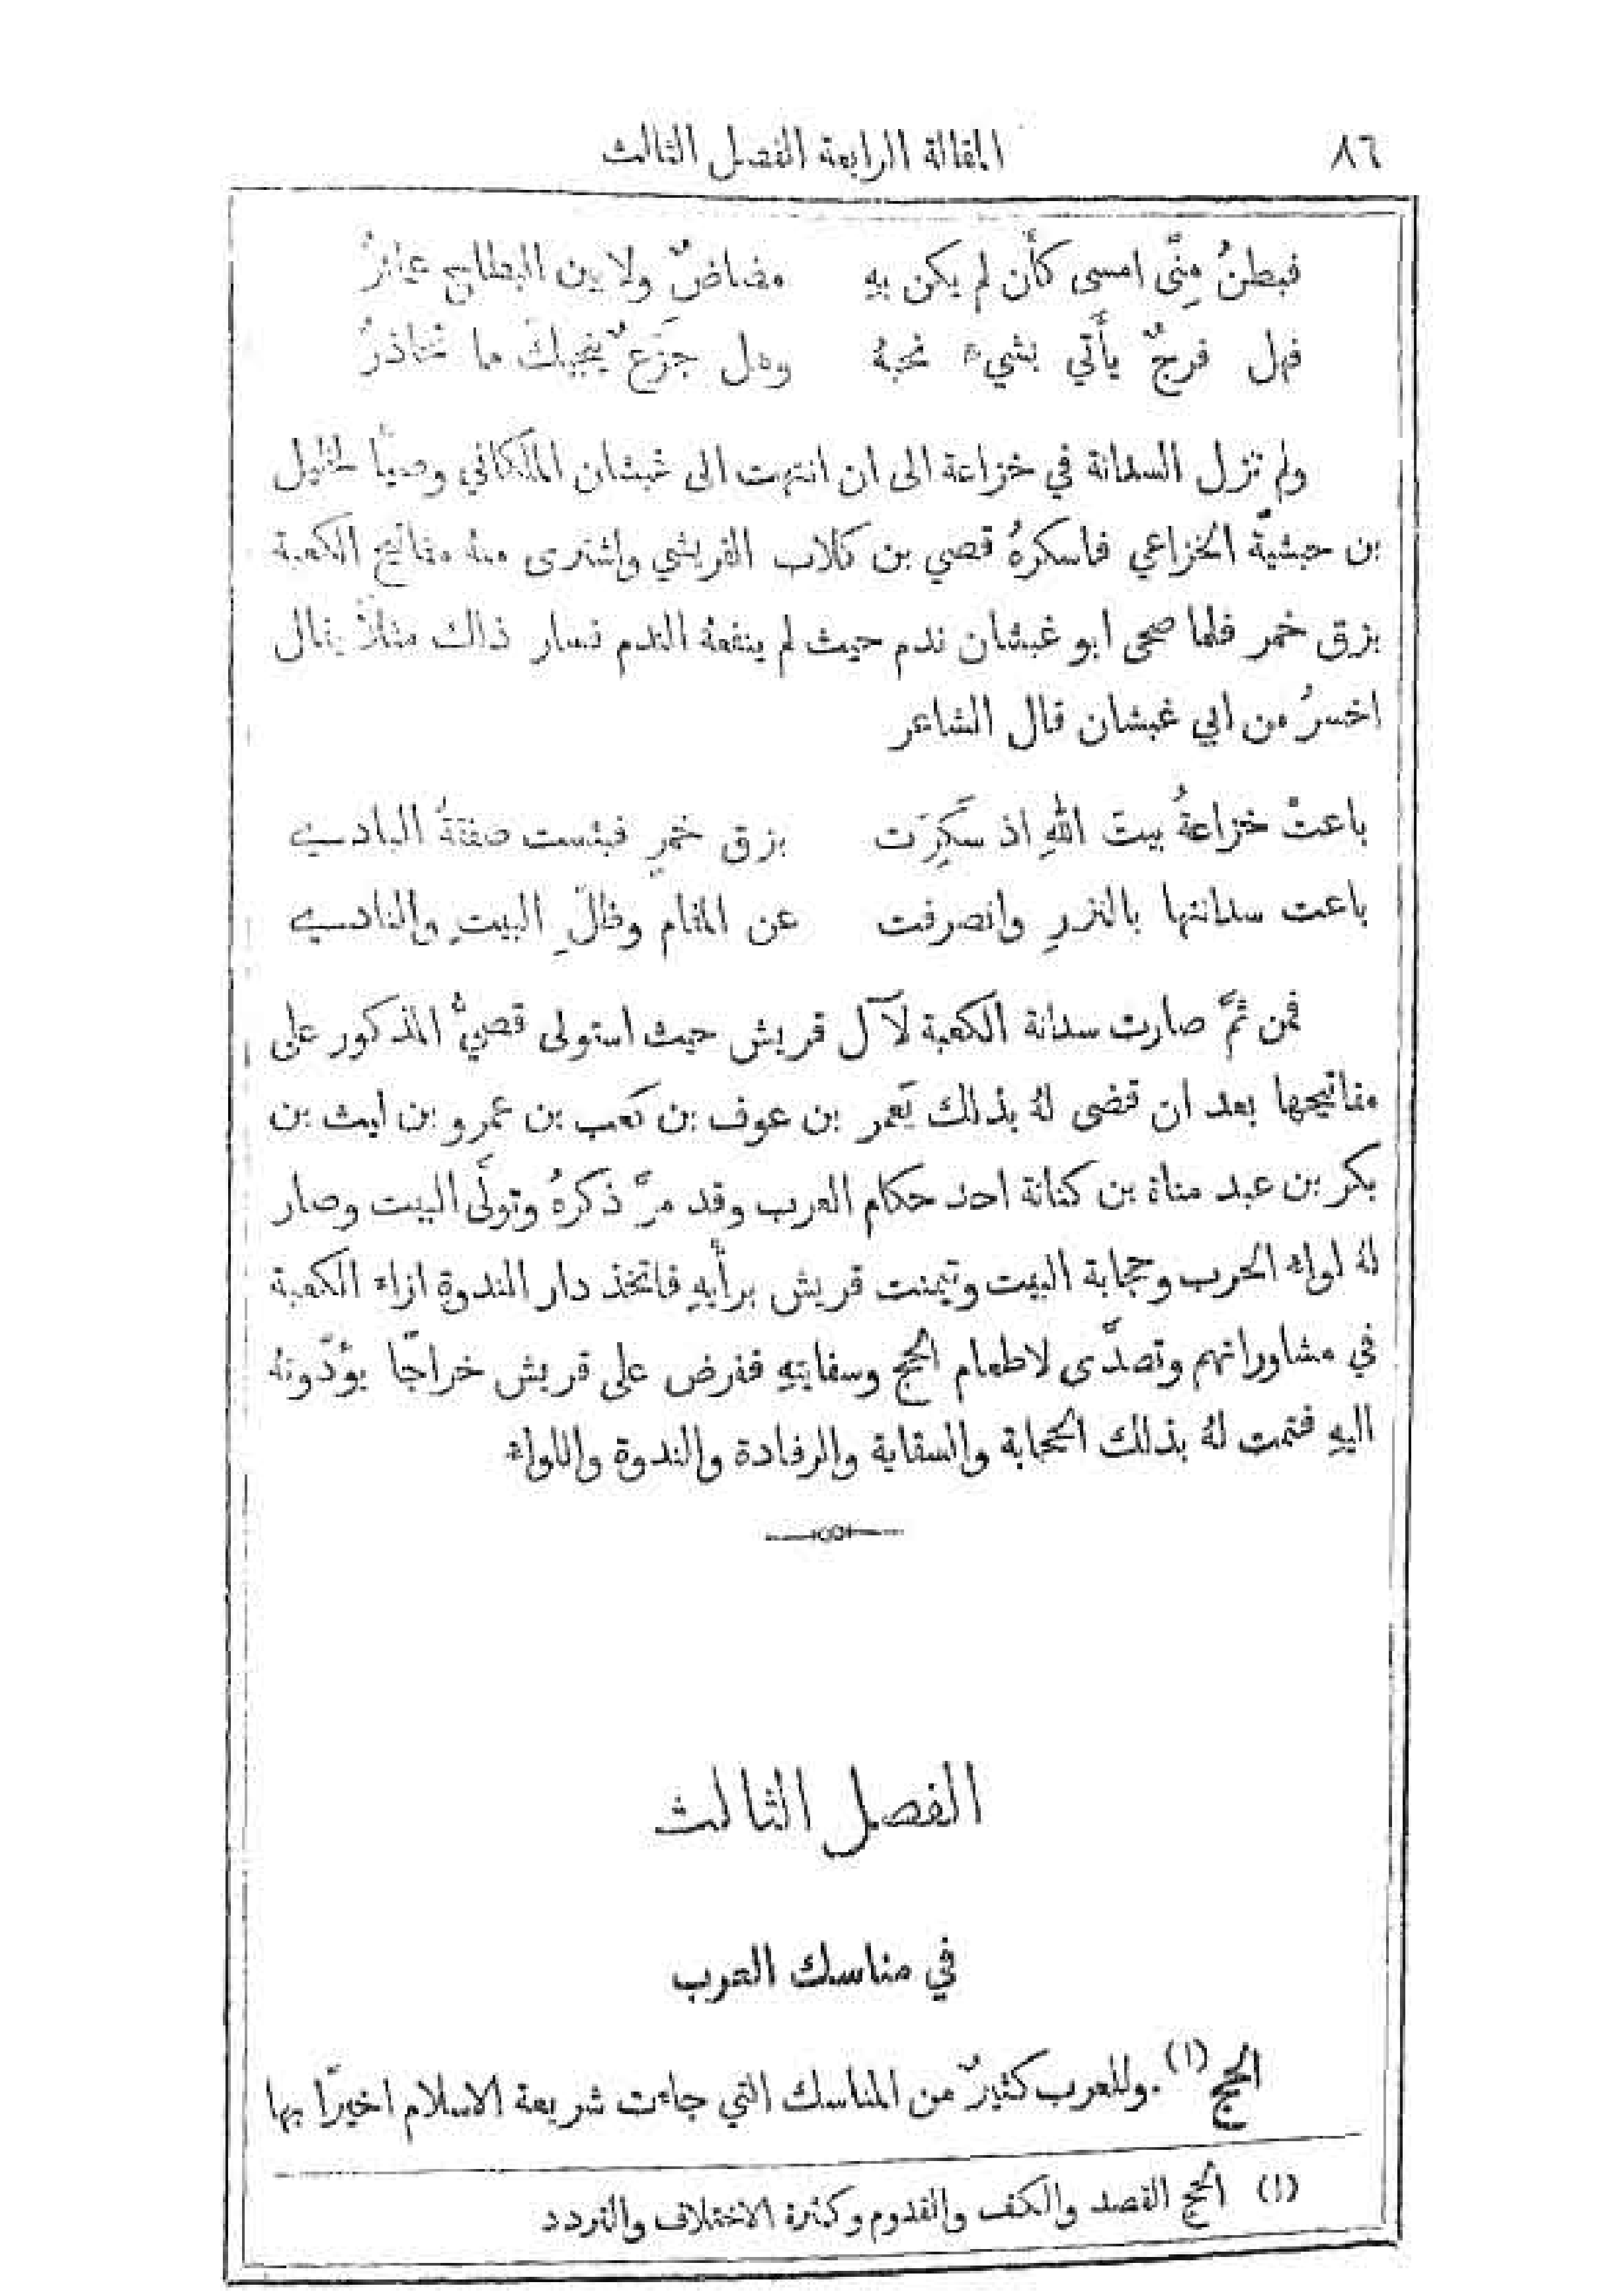 ٨٦ المقالة الرابعة الفصل الثالث
فبطنُ مِنًى امسى كأَن لم يكن بهِ مضاضٌ ولا بين البطاحِ عمائرُ
فهل فرجٌ يأْتي بشيءٍ نحبهُ وهل جَزَعٌ ينجيك ما نحاذرُ
ولم تزل السدانة في خزاعة الى ان انتهت الى غبشان الملكاني وصيًّا لحليل
بن حبشيَّة الخزاعي فاسكرهُ قصي بن كلاب القريشي واشترى منه مفاتيح الكعبة
بزق خمر فلما صحى ابو غبشان ندم حيث لم ينفعهُ الندم فسار ذلك مثلاً يقال
اخسرُ من ابي غبشان قال الشاعر
باعتْ خزاعةُ بيتَ اللهِ اذ سَكِرَت بزق خمرٍ فبئست صفقةُ البادي
باعت سدانتها بالنزرِ وانصرفت عن المقام وظلِّ البيتِ والنادي
فمن ثمَّ صارت سدانة الكعبة لآل قريش حيث استولى قصيٌّ المذكور على
مفاتيحها بعد ان قضى لهُ بذلك يَعمر بن عوف بن كعب بن عمرو بن ليث بن
بكر بن عبد مناة بن كنانة احد حكام العرب وقد مرَّ ذكرهُ وتولَّى البيت وصار
لهُ لواء الحرب وحجابة البيت وتيمنت قريش برأْيهِ فاتخذ دار الندوة ازاء الكعبة
في مشاوراتهم وتصدَّى لاطعام الحجّ وسقايتهِ ففرض على قريش خراجًا يؤدّونهُ
اليهِ فتمت لهُ بذلك الحجابة والسقاية والرفادة والندوة واللواء
الفصل الثالث
في مناسك العرب
الحج (١). وللعرب كثيرٌ من المناسك التي جاءت شريعة الاسلام اخيرًا بها
(١) الحج القصد والكف والقدوم وكثرة الاختلاف والتردد